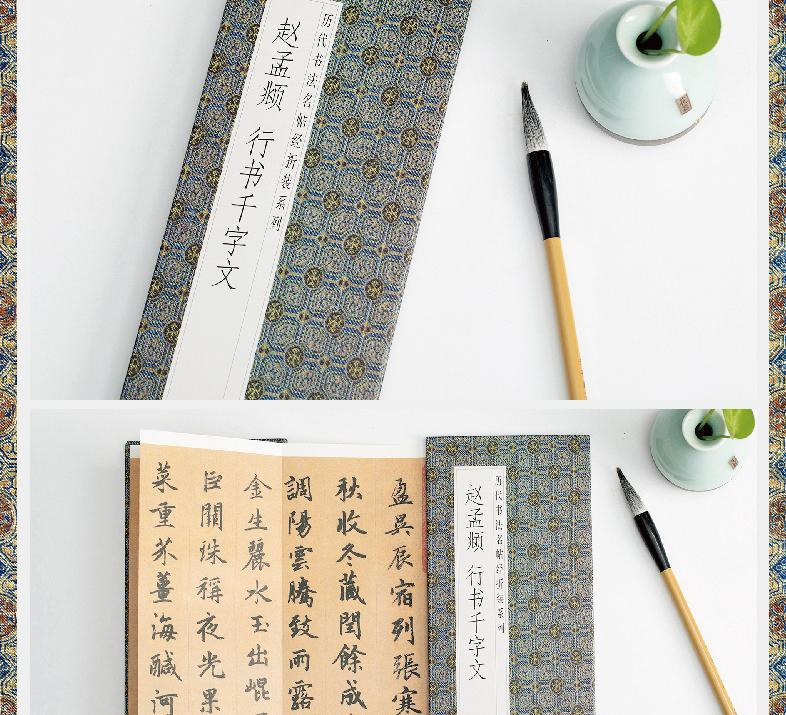 历代书法名帖经折装系列
赵孟𫖯 行书千字文
历代书法名帖经折装系列
赵孟𫖯 行书千字文
盈昃辰宿列張寒
秋收冬藏閏餘成
調陽雲騰致雨露
金生麗水玉出崐
巨闕珠稱夜光果
菜重芥薑海醎河